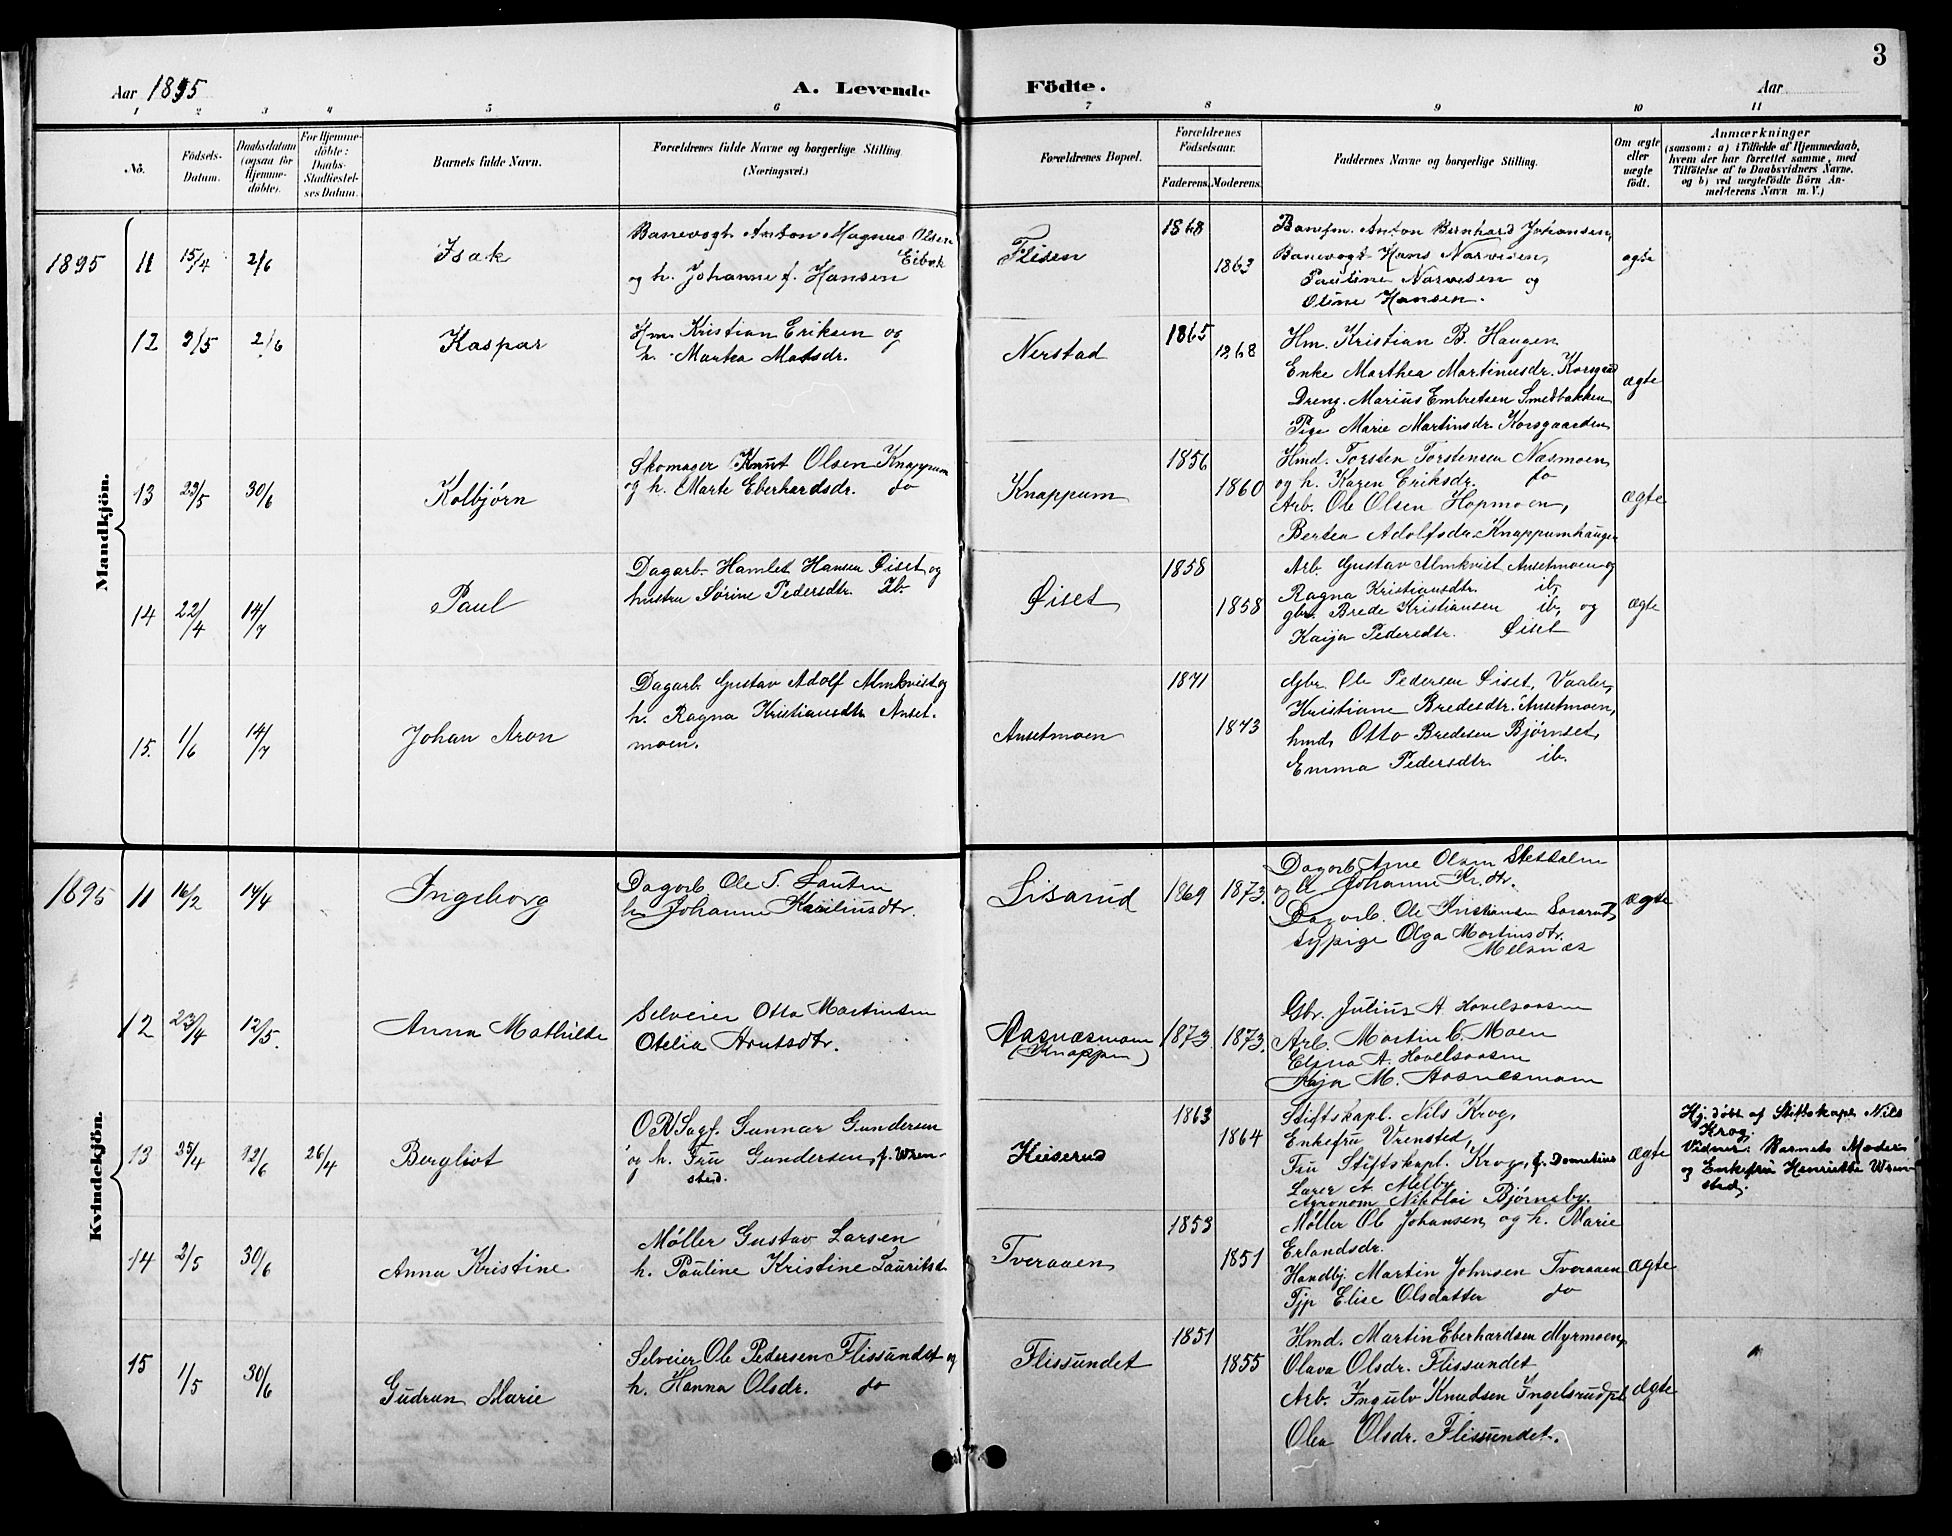 3
Aar 1895
A. Levende Födte.
Aar
1 2 3 4 5 6 7 8 9 10 11
No.
Födsels-Datum.
Daabsdatum (ogsaa for Hjemmedöbte).
For Hjemmedöbte: Daabs-Stadfæstelses Datum.
Barnets fulde Navn.
Forældrenes fulde Navne og borgerlige Stilling. (Næringsvei.)
Forældrenes Bopæl.
Forældrenes Födselsaar.
Faderens. Moderens.
Faddernes Navne og borgerlige Stilling.
Om ægte eller uægte födt.
Anmærkninger
(saasom: a) i Tilfælde af Hjemmedaab, hvem der har forrettet samme, med Tilföielse af to Daabsvidners Navne, og b) ved uægtefödte Börn Anmelderens Navn m. V.)
Mandkjön.
1895 11 15/4 2/6 Isak
Banevogt Anton Magnus Olsen Eibæk
og h. Johanne f. Hansen
Flisen 1868 1863
Banefm. Anton Bernhard Johansen,
Banevogt Hans Narvesen,
Pauline Narvesen og
Oline Hansen.
ægte
12 9/5 2/6 Kaspar
Hm. Kristian Eriksen og
h. Martea Matsdr.
Nerstad 1865 1868
Hm. Kristian B. Haugen
Enke Marthea Martinusdr. Korsgaard
Dreng. Marius Embretsen Smedbakken
Pige Marie Martinsdr. Korsgaarden
ægte
13 23/5 30/6 Kolbjørn
Skomager Knut Olsen Knappum
og h. Marte Eberhardsdr. do
Knappum 1856 1860
Hmd. Torsten Torstensen Næsmoen
og h. Karen Eriksdr. do
Arb. Ole Olsen Hopmoen,
Bertea Adolfsdr. Knappumhaugen
ægte
14 22/4 14/7 Paul
Dagarb. Hamlet Hansen Øiset og
hustru Sørine Pedersdtr. Ib.
Øiset 1858 1858
Arb. Gustav Almkvist Ansetmoen og
Ragna Kristiansdtr. ib,
gbr. Brede Kristiansen ib, og
Kaija Pedersdtr. Øiset
ægte
15. 1/6 14/7 Johan Aron
Dagarb. Gustav Adolf Almkvist og
h. Ragna Kristiansdtr Anset-
moen.
Ansetmoen 1871 1873
Gbr. Ole Pedersen Øiset, Vaaler,
Kristiane Bredesdtr. Ansetmoen,
hmd. Otto Bredesen Bjørnset,
Emma Pedersdtr. ib.
Kvindekjön.
1895 11 16/2 14/4 Ingeborg
Dagarb Ole S. Lauten
h. Johanne Kariliusdtr.
Lisarud 1869 1873.
Dagarb. Arne Olsen
og h Johanne Kr.dtr.
Dagarb. Ole Kristiansen
Sypige Olga Martinsdtr.
Melsnæs
ægte
12 23/4 12/5. Anna Mathilde
Selveier Otto Martinsen
Otelia Arntsdtr.
Aasnæsmoen
(Knappen)
1873. 1873.
Gbr. Julius A. Hovelsaasen
Arb. Martin C. Moen
Elina A. Hovelsaasen
Kaja M. Aasnæsmoen
13 25/4 12/6 26/4 Bergliot
O R Sagf. Gunnar Gundersen
og h. Fru Gundersen, f. Wren-
sted.
Heiserud 1863 1864
Stiftskapl. Nils Krog,
Enkefru Vrensted,
Fru Stiftskapl. Krog, f. Dometius
Lærer A. Melby
Agronom Nikolai Bjørneby.
ægte
Hj. døbt af Stiftskapl. Nils
Krog.
Vidner: Barnets Moder
og Enkefru Henriette Wren-
sted.
14 2/5 30/6 Anna Kristine
Møller Gustav Larsen
h. Pauline Kristine Lauritsd.
Tveraaen 1853 1851
Møller Ole Johansen og h. Marie
Erlandsdr.
Handbj. Martin Johnsen Tveraaen
Tjp Elise Olsdatter do
ægte
15 1/5 30/6 Gudrun Marie
Selveier Ole Pedersen Flissundet og
h. Hanna Olsdr. do
Flissundet 1851 1855
Hmd. Martin Eberhardsen Myrmoen,
Olava Olsdr. Flissundet
Arb. Ingulv Knudsen Ingelsrudpl.
Olea Olsdr. Flissundet.
ægte